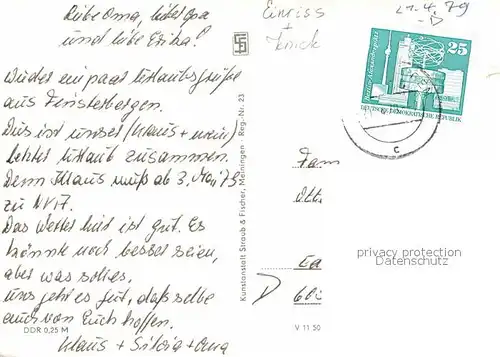 Liebe Oma, lieber Opa
und liebe Erika!
Wieder ein paar Urlaubsgrüße
aus Finsterbergen.
Dies ist unser (Klaus + mein)
letzter Urlaub zusammen.
Denn Klaus muß ab 3. Mai 79
zu NVA.
Das Wetter hier ist gut. Es
könnte noch besser seien,
aber was solls,
uns geht es gut, daß selbe
auch von Euch hoffen.
Klaus + Silvia + Oma
DDR 0,25 M
Kunstanstalt Straub & Fischer, Meiningen · Reg.-Nr. 23
Einriss
+
Knick
21.4.79
-D
25
DEUTSCHE DEMOKRATISCHE REPUBLIK
c
Fam
privacy protection
Datenschutz
D
V 11 50